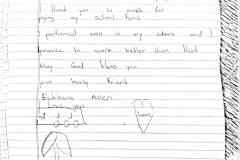 I thank you so much for
paying my school fees
I performed well in my exams and I
promise to work better than that
May God bless you
your lovely friend
Allen
I love you
love